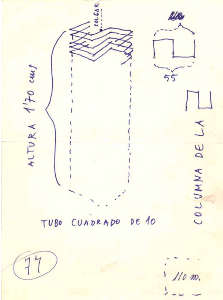 COLGAR
55
ALTURA 1'70 cms
COLUMNA DE LA
TUBO CUADRADO DE 10
77
110 m.